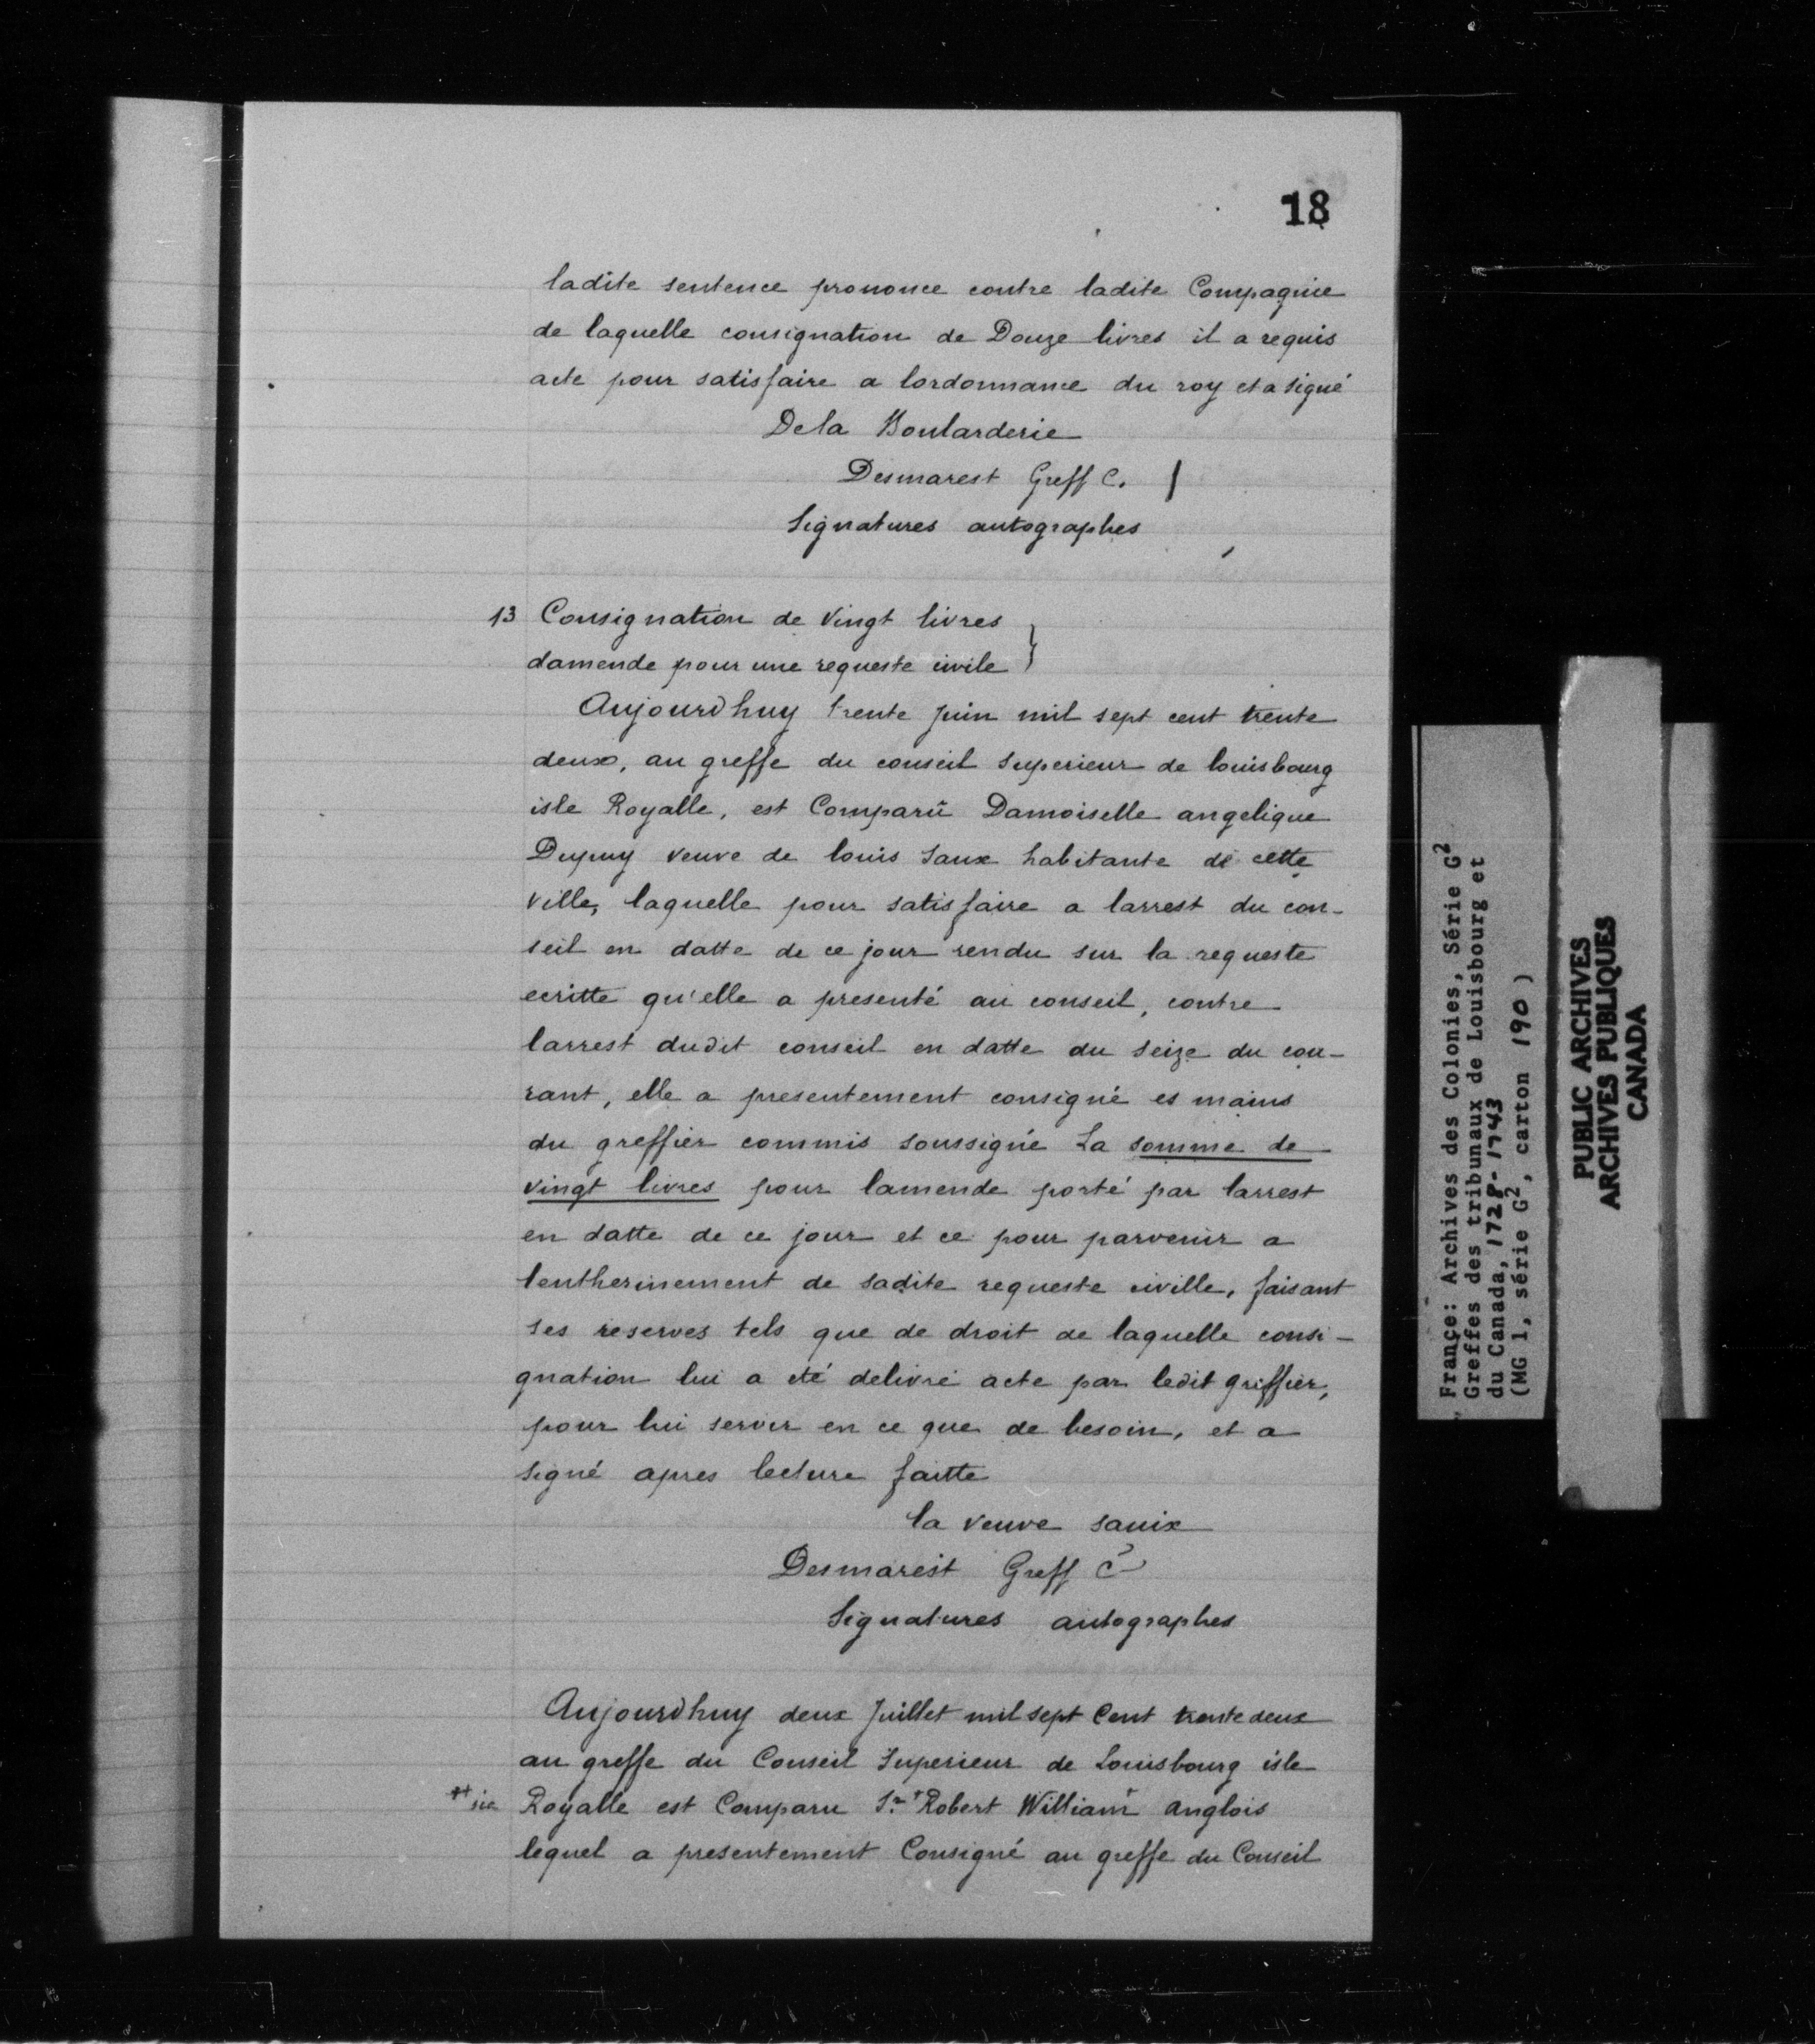 18
ladite sentence prononce contre ladite Compagnie
de laquelle consignation de Douze livres il a requis
acte pour satisfaire a lordonnance du roy et a signé
Dela Boularderie
Desmarest Greff C.
Signatures autographes
13 Consignation de Vingt livres
damende pour une requeste civile
Aujourdhuy trente Juin mil sept cent trente
deux, au greffe du conseil Superieur de louisbourg
isle Royalle, est Comparü Damoiselle angelique
Dupuy veuve de louis Saux habitante de cette
ville, laquelle pour satisfaire a larrest du con-
seil en datte de ce jour rendu sur la requeste
ecritte qu'elle a presenté au conseil, contre
larrest dudit conseil en datte du seize du cou-
rant, elle a presentement consigné es mains
du greffier commis soussigné La somme de
vingt livres pour lamende porté par larrest
en datte de ce jour et ce pour parvenir a
lentherinement de sadite requeste civille, faisant
ses reserves tels que de droit de laquelle consi-
gnation lui a eté delivré acte par ledit greffier,
pour lui servir en ce que de besoin, et a
signé apres lecture faitte
la veuve sauix
Desmarest Greff C
Signatures autographes
Aujourdhuy deux Juillet mil sept Cent trente deux
au greffe du Conseil Superieur de Louisbourg isle
sic Royalle est Comparu Sr. Robert William anglois
lequel a presentement Consigné au greffe du Conseil
France: Archives des Colonies, Série G2
Greffes des tribunaux de Louisbourg et
du Canada, 1728-1743
(MG 1, série G2, carton 190)
PUBLIC ARCHIVES
ARCHIVES PUBLIQUES
CANADA